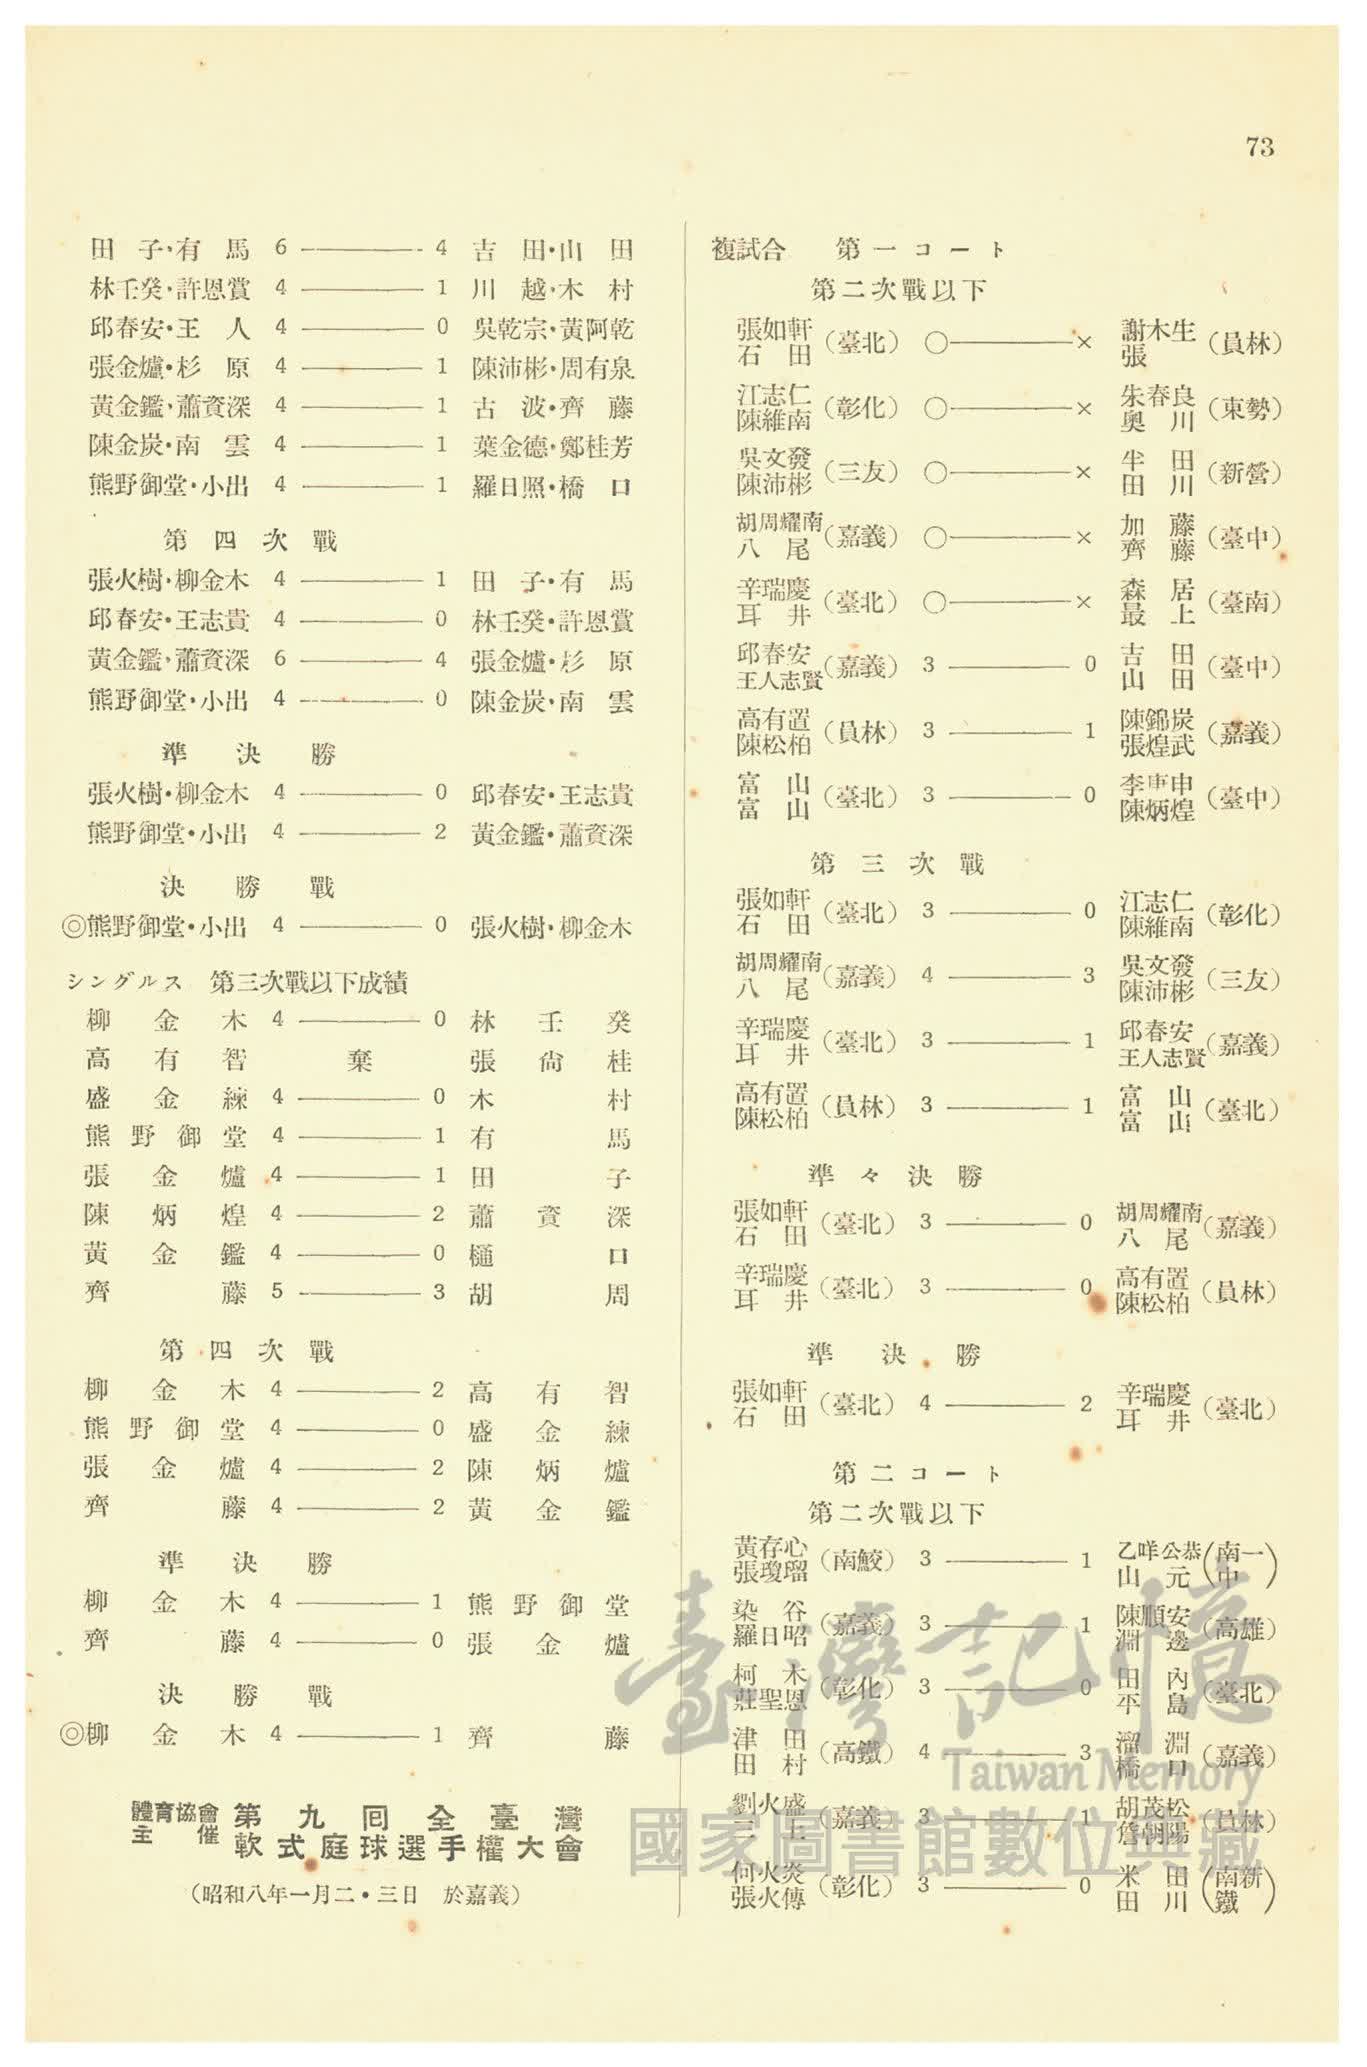 73
田子・有馬 6 ——— 4 吉田・山田
林壬癸・許恩賞 4 ——— 1 川越・木村
邱春安・王人 4 ——— 0 吳乾宗・黃阿乾
張金爐・杉原 4 ——— 1 陳沛彬・周有泉
黃金鑑・蕭資深 4 ——— 1 古波・齊藤
陳金炭・南雲 4 ——— 1 葉金德・鄭桂芳
熊野御堂・小出 4 ——— 1 羅日照・橋口
第四次戰
張火樹・柳金木 4 ——— 1 田子・有馬
邱春安・王志貴 4 ——— 0 林壬癸・許恩賞
黃金鑑・蕭資深 6 ——— 4 張金爐・杉原
熊野御堂・小出 4 ——— 0 陳金炭・南雲
準決勝
張火樹・柳金木 4 ——— 0 邱春安・王志貴
熊野御堂・小出 4 ——— 2 黃金鑑・蕭資深
決勝戰
◎熊野御堂・小出 4 ——— 0 張火樹・柳金木
シングルス 第三次戰以下成績
柳金木 4 ——— 0 林壬癸
高有智 棄 張尙桂
盛金練 4 ——— 0 木村
熊野御堂 4 ——— 1 有馬
張金爐 4 ——— 1 田子
陳炳煌 4 ——— 2 蕭資深
黃金鑑 4 ——— 0 樋口
齊藤 5 ——— 3 胡周
第四次戰
柳金木 4 ——— 2 高有智
熊野御堂 4 ——— 0 盛金練
張金爐 4 ——— 2 陳炳爐
齊藤 4 ——— 2 黃金鑑
準決勝
柳金木 4 ——— 1 熊野御堂
齊藤 4 ——— 0 張金爐
決勝戰
◎柳金木 4 ——— 1 齊藤
體育協會主催 第九回全臺灣
軟式庭球選手權大會
（昭和八年一月二・三日 於嘉義）
複試合 第一コート
第二次戰以下
張如軒 石田（臺北） ○———× 謝木生 張（員林）
江志仁 陳維南（彰化） ○———× 朱春良 奧川（東勢）
吳文發 陳沛彬（三友） ○———× 半田 田川（新營）
胡周耀南 八尾（嘉義） ○———× 加藤 齊藤（臺中）
辛瑞慶 耳井（臺北） ○———× 森居 最上（臺南）
邱春安 王人志賢（嘉義） 3 ——— 0 吉田 山田（臺中）
高有置 陳松柏（員林） 3 ——— 1 陳錦炭 張煌武（嘉義）
富山 富山（臺北） 3 ——— 0 李庚申 陳炳煌（臺中）
第三次戰
張如軒 石田（臺北） 3 ——— 0 江志仁 陳維南（彰化）
胡周耀南 八尾（嘉義） 4 ——— 3 吳文發 陳沛彬（三友）
辛瑞慶 耳井（臺北） 3 ——— 1 邱春安 王人志賢（嘉義）
高有置 陳松柏（員林） 3 ——— 1 富山 富山（臺北）
準々決勝
張如軒 石田（臺北） 3 ——— 0 胡周耀南 八尾（嘉義）
辛瑞慶 耳井（臺北） 3 ——— 0 高有置 陳松柏（員林）
準決勝
張如軒 石田（臺北） 4 ——— 2 辛瑞慶 耳井（臺北）
第二コート
第二次戰以下
黃存心 張瓊瑠（南鮫） 3 ——— 1 乙咩公恭 山元（南一中）
染谷 羅日昭（嘉義） 3 ——— 1 陳順安 淵邊（高雄）
柯木 莊聖恩（彰化） 3 ——— 0 田內 平島（臺北）
津田 田村（高鐵） 4 ——— 3 溜淵 橋口（嘉義）
劉火盛 三上（嘉義） 3 ——— 1 胡茂松 詹朝陽（員林）
何火炎 張火傳（彰化） 3 ——— 0 米田 田川（南新鐵）
臺灣記憶
Taiwan Memory
國家圖書館數位典藏